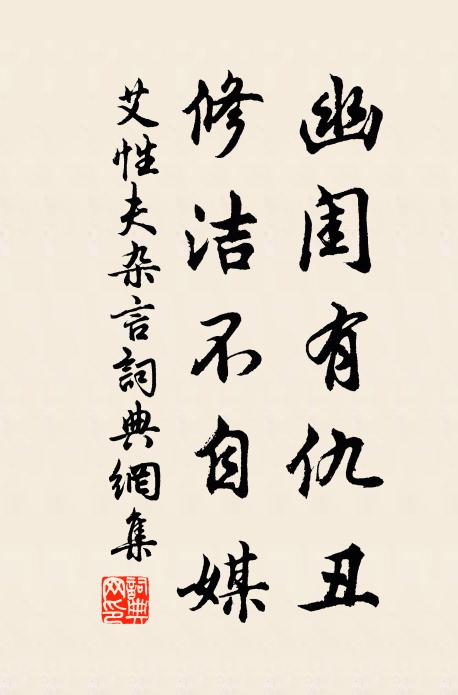 幽闺有仇丑
修洁不自媒
艾性夫杂言詞典網集
詞典
网印